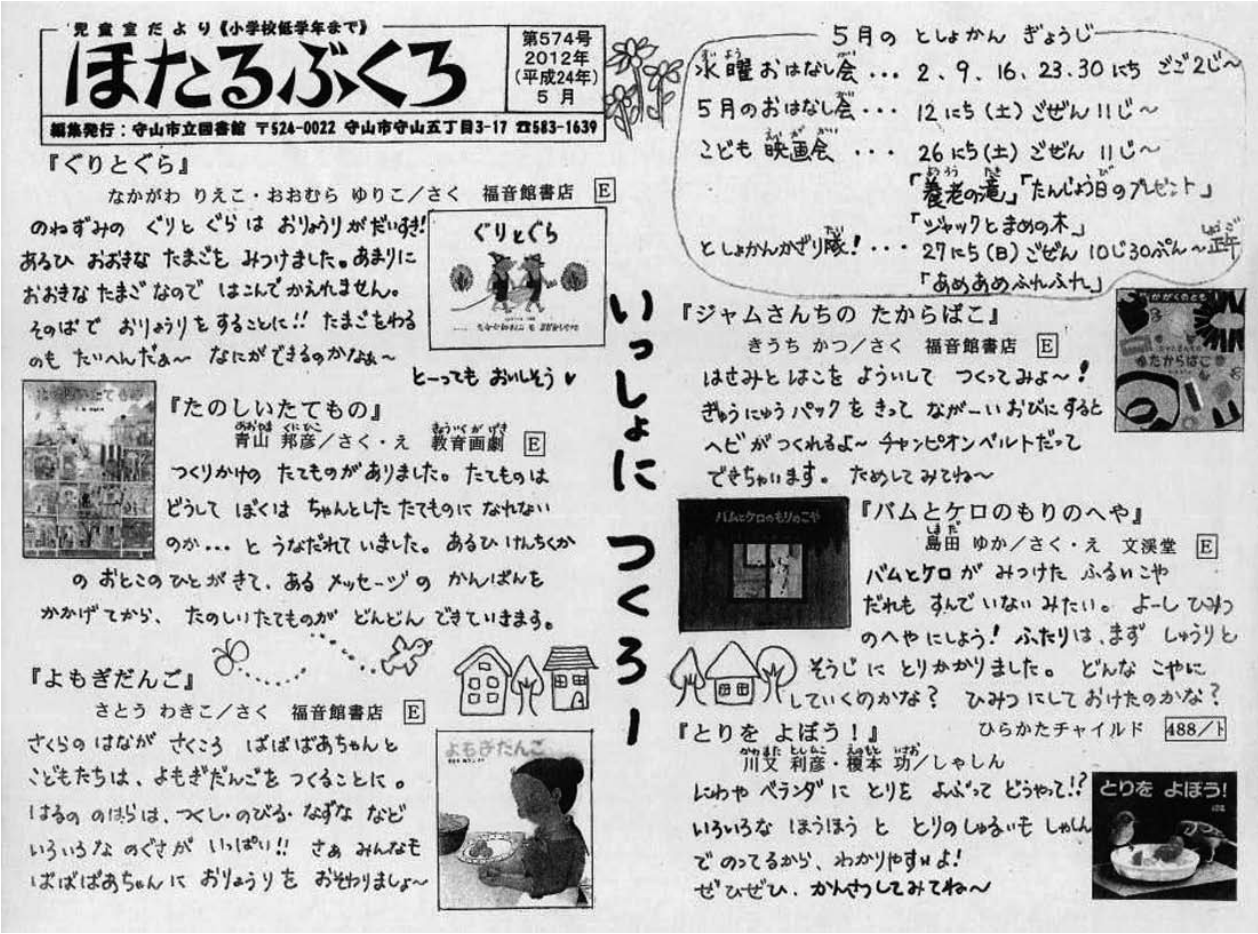 児童室だより《小学校低学年まで》
ほたるぶくろ
第574号
2012年
(平成24年)
5月
編集発行：守山市立図書館 〒524-0022 守山市守山五丁目3-17 ☎583-1639
『ぐりとぐら』
なかがわ りえこ・おおむら ゆりこ／さく 福音館書店 E
のねずみの ぐりと ぐらは おりょうりがだいすき!
あるひ おおきな たまごを みつけました。あまりに
おおきな たまごなので はこんでかえれません。
そのばで おりょうりをすることに!! たまごをわる
のも たいへんだぁ〜 なにができるのかなぁ〜
とーっても おいしそう♥
ぐりとぐら
『たのしいたてもの』
あおやま くにひこ きょういくがげき
青山 邦彦／さく・え 教育画劇 E
つくりかけの たてものがありました。たてものは
どうして ぼくは ちゃんとした たてものに なれない
のか… と うなだれて いました。あるひ けんちくか
の おとこのひとがきて、ある メッセージの かんばんを
かかげてから、たのしいたてものが どんどん できていきます。
『よもぎだんご』
さとう わきこ／さく 福音館書店 E
さくらの はなが さくころ ばばばあちゃんと
こどもたちは、よもぎだんごを つくることに。
はるの のはらは、つくし・のびる・なずな など
いろいろな のぐさが いっぱい!! さぁ みんなも
ばばばあちゃんに おりょうりを おそわりましょ〜
よもぎだんご
いっしょに つくろー
5月の としょかん ぎょうじ
すいよう がい
水曜おはなし会… 2、9、16、23、30にち ごご2じ〜
5月のおはなし会… 12にち(土)ごぜん11じ〜
えいがかい
こども 映画会 … 26にち(土)ごぜん 11じ〜
ようろう たき び
「養老の滝」「たんじょう日のプレゼント」
「ジャックとまめの木」
たい しょうご
としょかんかざり隊!… 27にち(日)ごぜん 10じ30ぷん〜正午
「あめあめふれふれ」
『ジャムさんちの たからばこ』
きうち かつ／さく 福音館書店 E
はさみと はこを よういして つくってみよ〜!
ぎゅうにゅうパックを きって ながーいおびにすると
ヘビがつくれるよ〜 チャンピオンベルトだって
できちゃいます。ためしてみてね〜
かがくのとも
たからばこ
『バムとケロのもりのへや』
しまだ
島田 ゆか／さく・え 文渓堂 E
バムとケロが みつけた ふるいこや
だれも すんで いないみたい。よーし ひみつ
のへやにしよう! ふたりは、まず しゅうりと
そうじに とりかかりました。 どんな こやに
していくのかな? ひみつにしておけたのかな?
バムとケロのもりのこや
『とりを よぼう！』
ひらかたチャイルド 488/ト
かわまた としひこ えのもと いさお
川又 利彦・榎本 功／しゃしん
にわや ベランダに とりを よぶって どうやって!?
いろいろな ほうほう と とりのしゅるいも しゃしん
でのってるから、わかりやすいよ!
ぜひぜひ、かんさつしてみてね〜
とりを よぼう!